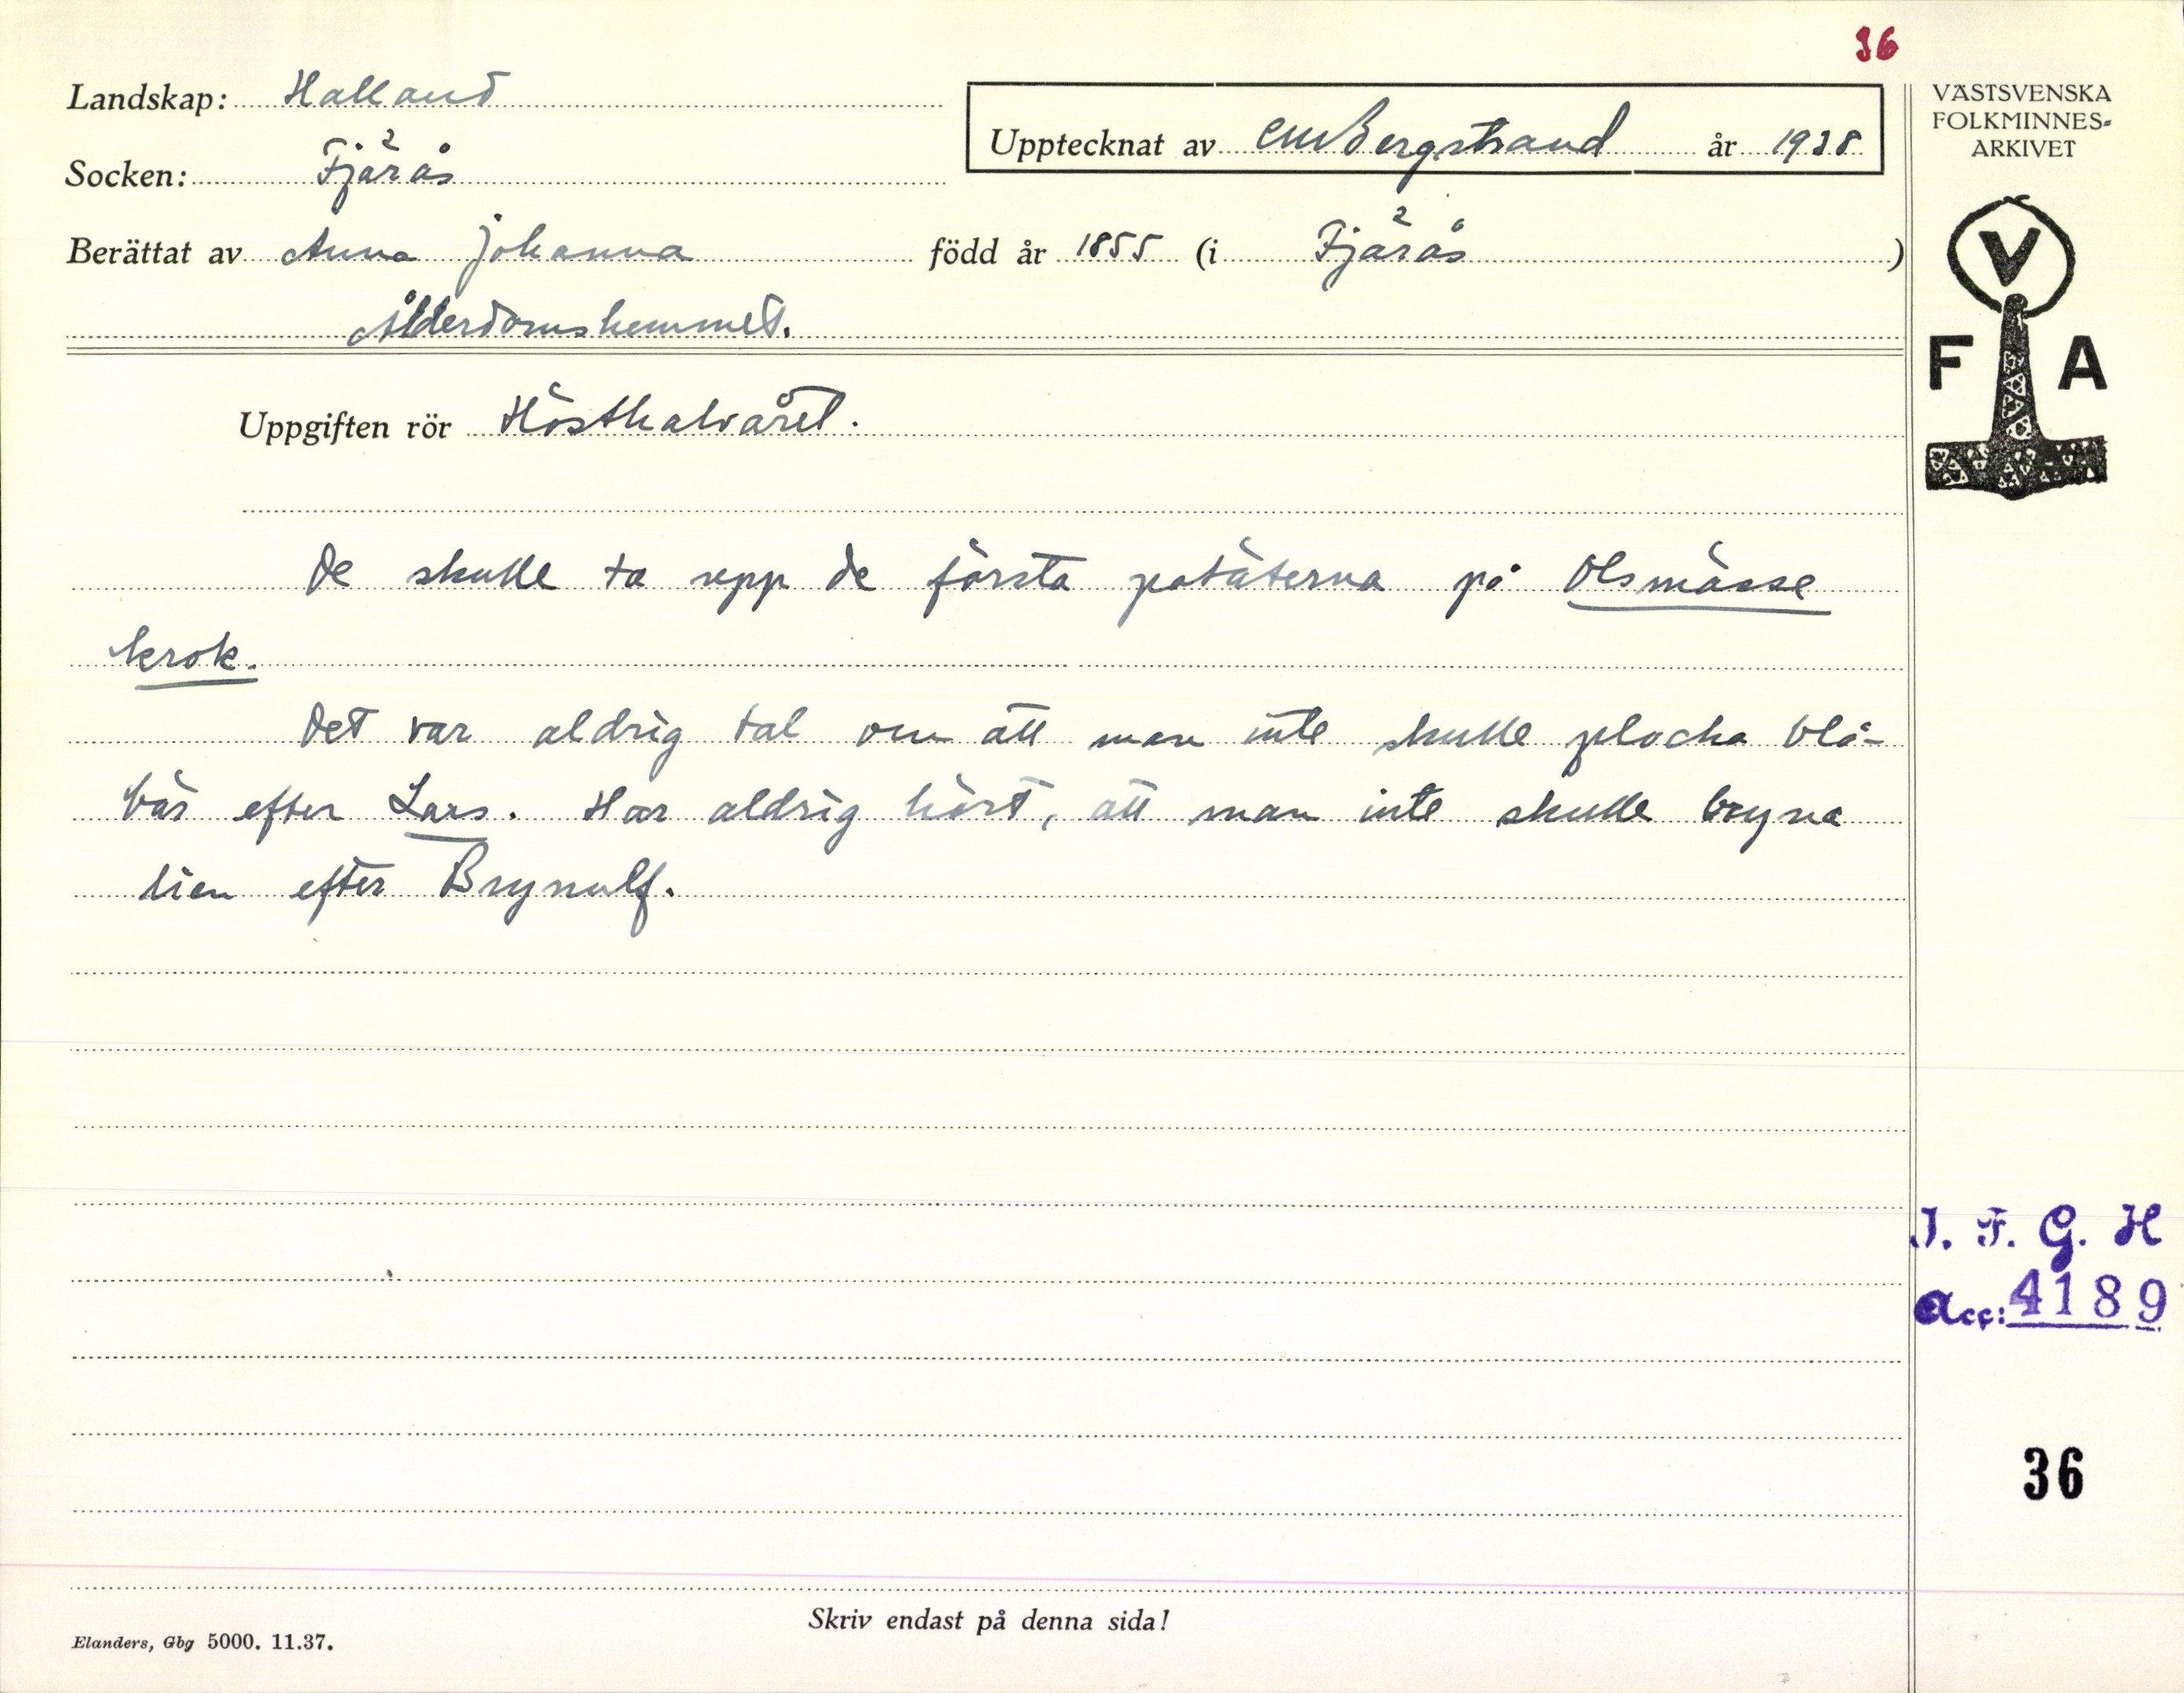 36
Landskap: Halland
Upptecknat av CMBergstrand år 1938
VÄSTSVENSKA
FOLKMINNES-
ARKIVET
Socken: Fjärås
Berättat av Anna Johanna född år 1855 (i Fjärås)
Ålderdomshemmet.
V
F A
Uppgiften rör Hösthalvåret.
De skulle ta upp de första potäterna på Olsmässe
krok.
Det var aldrig tal om att man inte skulle plocka blå-
bär efter Lars. Har aldrig hört, att man inte skulle bryna
lien efter Brynulf.
I. F. G. H
Acc: 4189
36
Skriv endast på denna sida!
Elanders, Gbg 5000. 11.37.